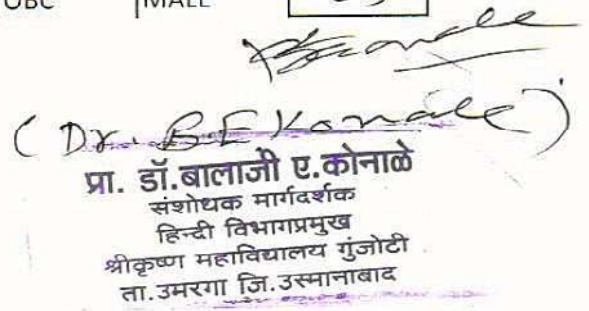 OBC MALE
(Dr. B.E Konale)
प्रा. डॉ.बालाजी ए.कोनाळे
संशोधक मार्गदर्शक
हिन्दी विभागप्रमुख
श्रीकृष्ण महाविद्यालय गुंजोटी
ता.उमरगा जि.उस्मानाबाद